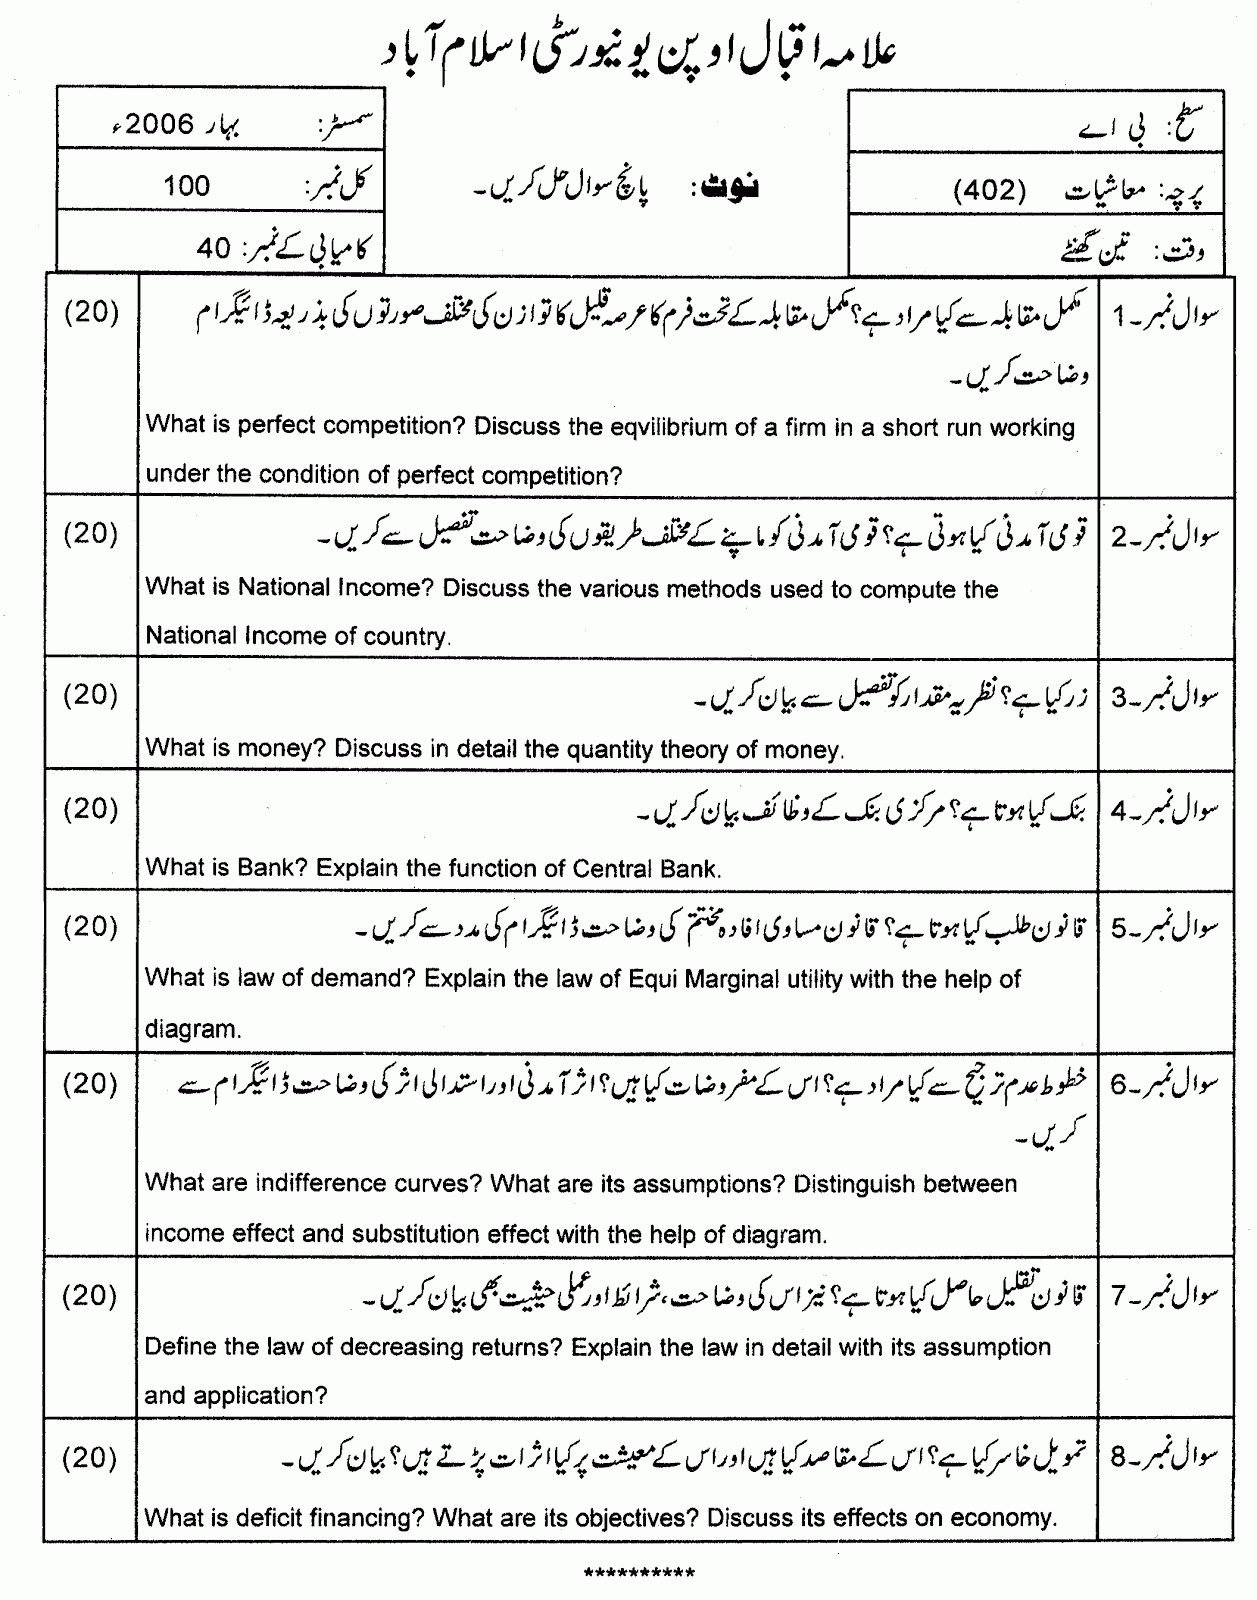 علامہ اقبال اوپن یونیورسٹی اسلام آباد
سطح: بی اے
سمسٹر: بہار 2006ء
پرچہ: معاشیات (402)
نوٹ: پانچ سوال حل کریں۔
کل نمبر: 100
وقت: تین گھنٹے
کامیابی کے نمبر: 40
سوال نمبر۔1 مکمل مقابلہ سے کیا مراد ہے؟ مکمل مقابلہ کے تحت فرم کا عرصہ قلیل کا توازن کی مختلف صورتوں کی بذریعہ ڈائیگرام (20)
وضاحت کریں۔
What is perfect competition? Discuss the eqvilibrium of a firm in a short run working
under the condition of perfect competition?
سوال نمبر۔2 قومی آمدنی کیا ہوتی ہے؟ قومی آمدنی کو ماپنے کے مختلف طریقوں کی وضاحت تفصیل سے کریں۔ (20)
What is National Income? Discuss the various methods used to compute the
National Income of country.
سوال نمبر۔3 زر کیا ہے؟ نظریہ مقدار کو تفصیل سے بیان کریں۔ (20)
What is money? Discuss in detail the quantity theory of money.
سوال نمبر۔4 بنک کیا ہوتا ہے؟ مرکزی بنک کے وظائف بیان کریں۔ (20)
What is Bank? Explain the function of Central Bank.
سوال نمبر۔5 قانون طلب کیا ہوتا ہے؟ قانون مساوی افادہ مختتم کی وضاحت ڈائیگرام کی مدد سے کریں۔ (20)
What is law of demand? Explain the law of Equi Marginal utility with the help of
diagram.
سوال نمبر۔6 خطوط عدم ترجیح سے کیا مراد ہے؟ اس کے مفروضات کیا ہیں؟ اثر آمدنی اور استدالی اثر کی وضاحت ڈائیگرام سے (20)
کریں۔
What are indifference curves? What are its assumptions? Distinguish between
income effect and substitution effect with the help of diagram.
سوال نمبر۔7 قانون تقلیل حاصل کیا ہوتا ہے؟ نیز اس کی وضاحت، شرائط اور عملی حیثیت بھی بیان کریں۔ (20)
Define the law of decreasing returns? Explain the law in detail with its assumption
and application?
سوال نمبر۔8 تمویل خاسر کیا ہے؟ اس کے مقاصد کیا ہیں اور اس کے معیشت پر کیا اثرات پڑتے ہیں؟ بیان کریں۔ (20)
What is deficit financing? What are its objectives? Discuss its effects on economy.
**********